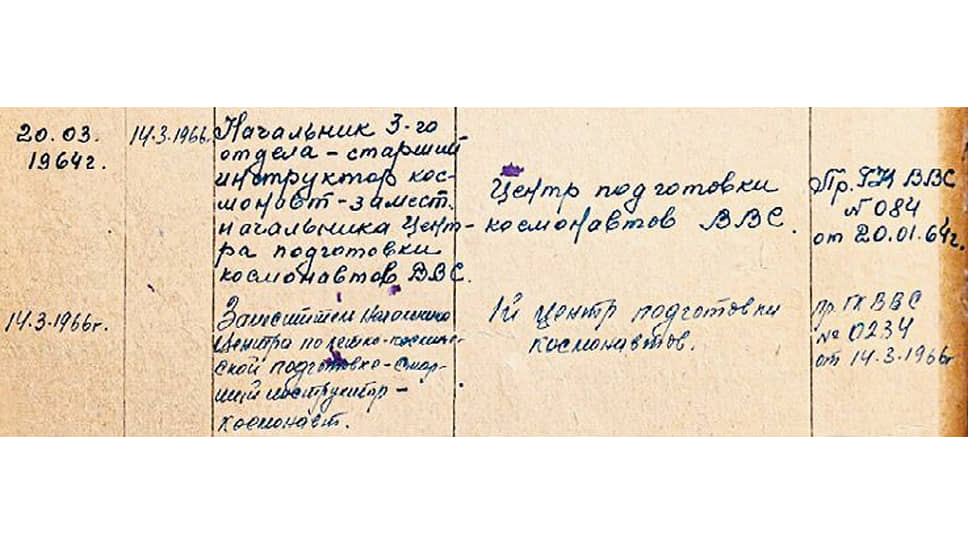 20.03.
1964г.
14.3.1966г.
Начальник 3-го
отдела – старший
инструктор кос-
монавт – замест.
начальника Цент-
ра подготовки
космонавтов ВВС.
Центр подготовки
космонавтов ВВС.
Пр. ГК ВВС
№ 084
от 20.01.64г.
14.3.1966г.
Заместител Начальника
Центра по летно-космиче-
ской подготовке – стар-
ший инструктор –
космонавт.
1й центр подготовки
космонавтов.
пр. ГК ВВС
№ 0234
от 14.3.1966г